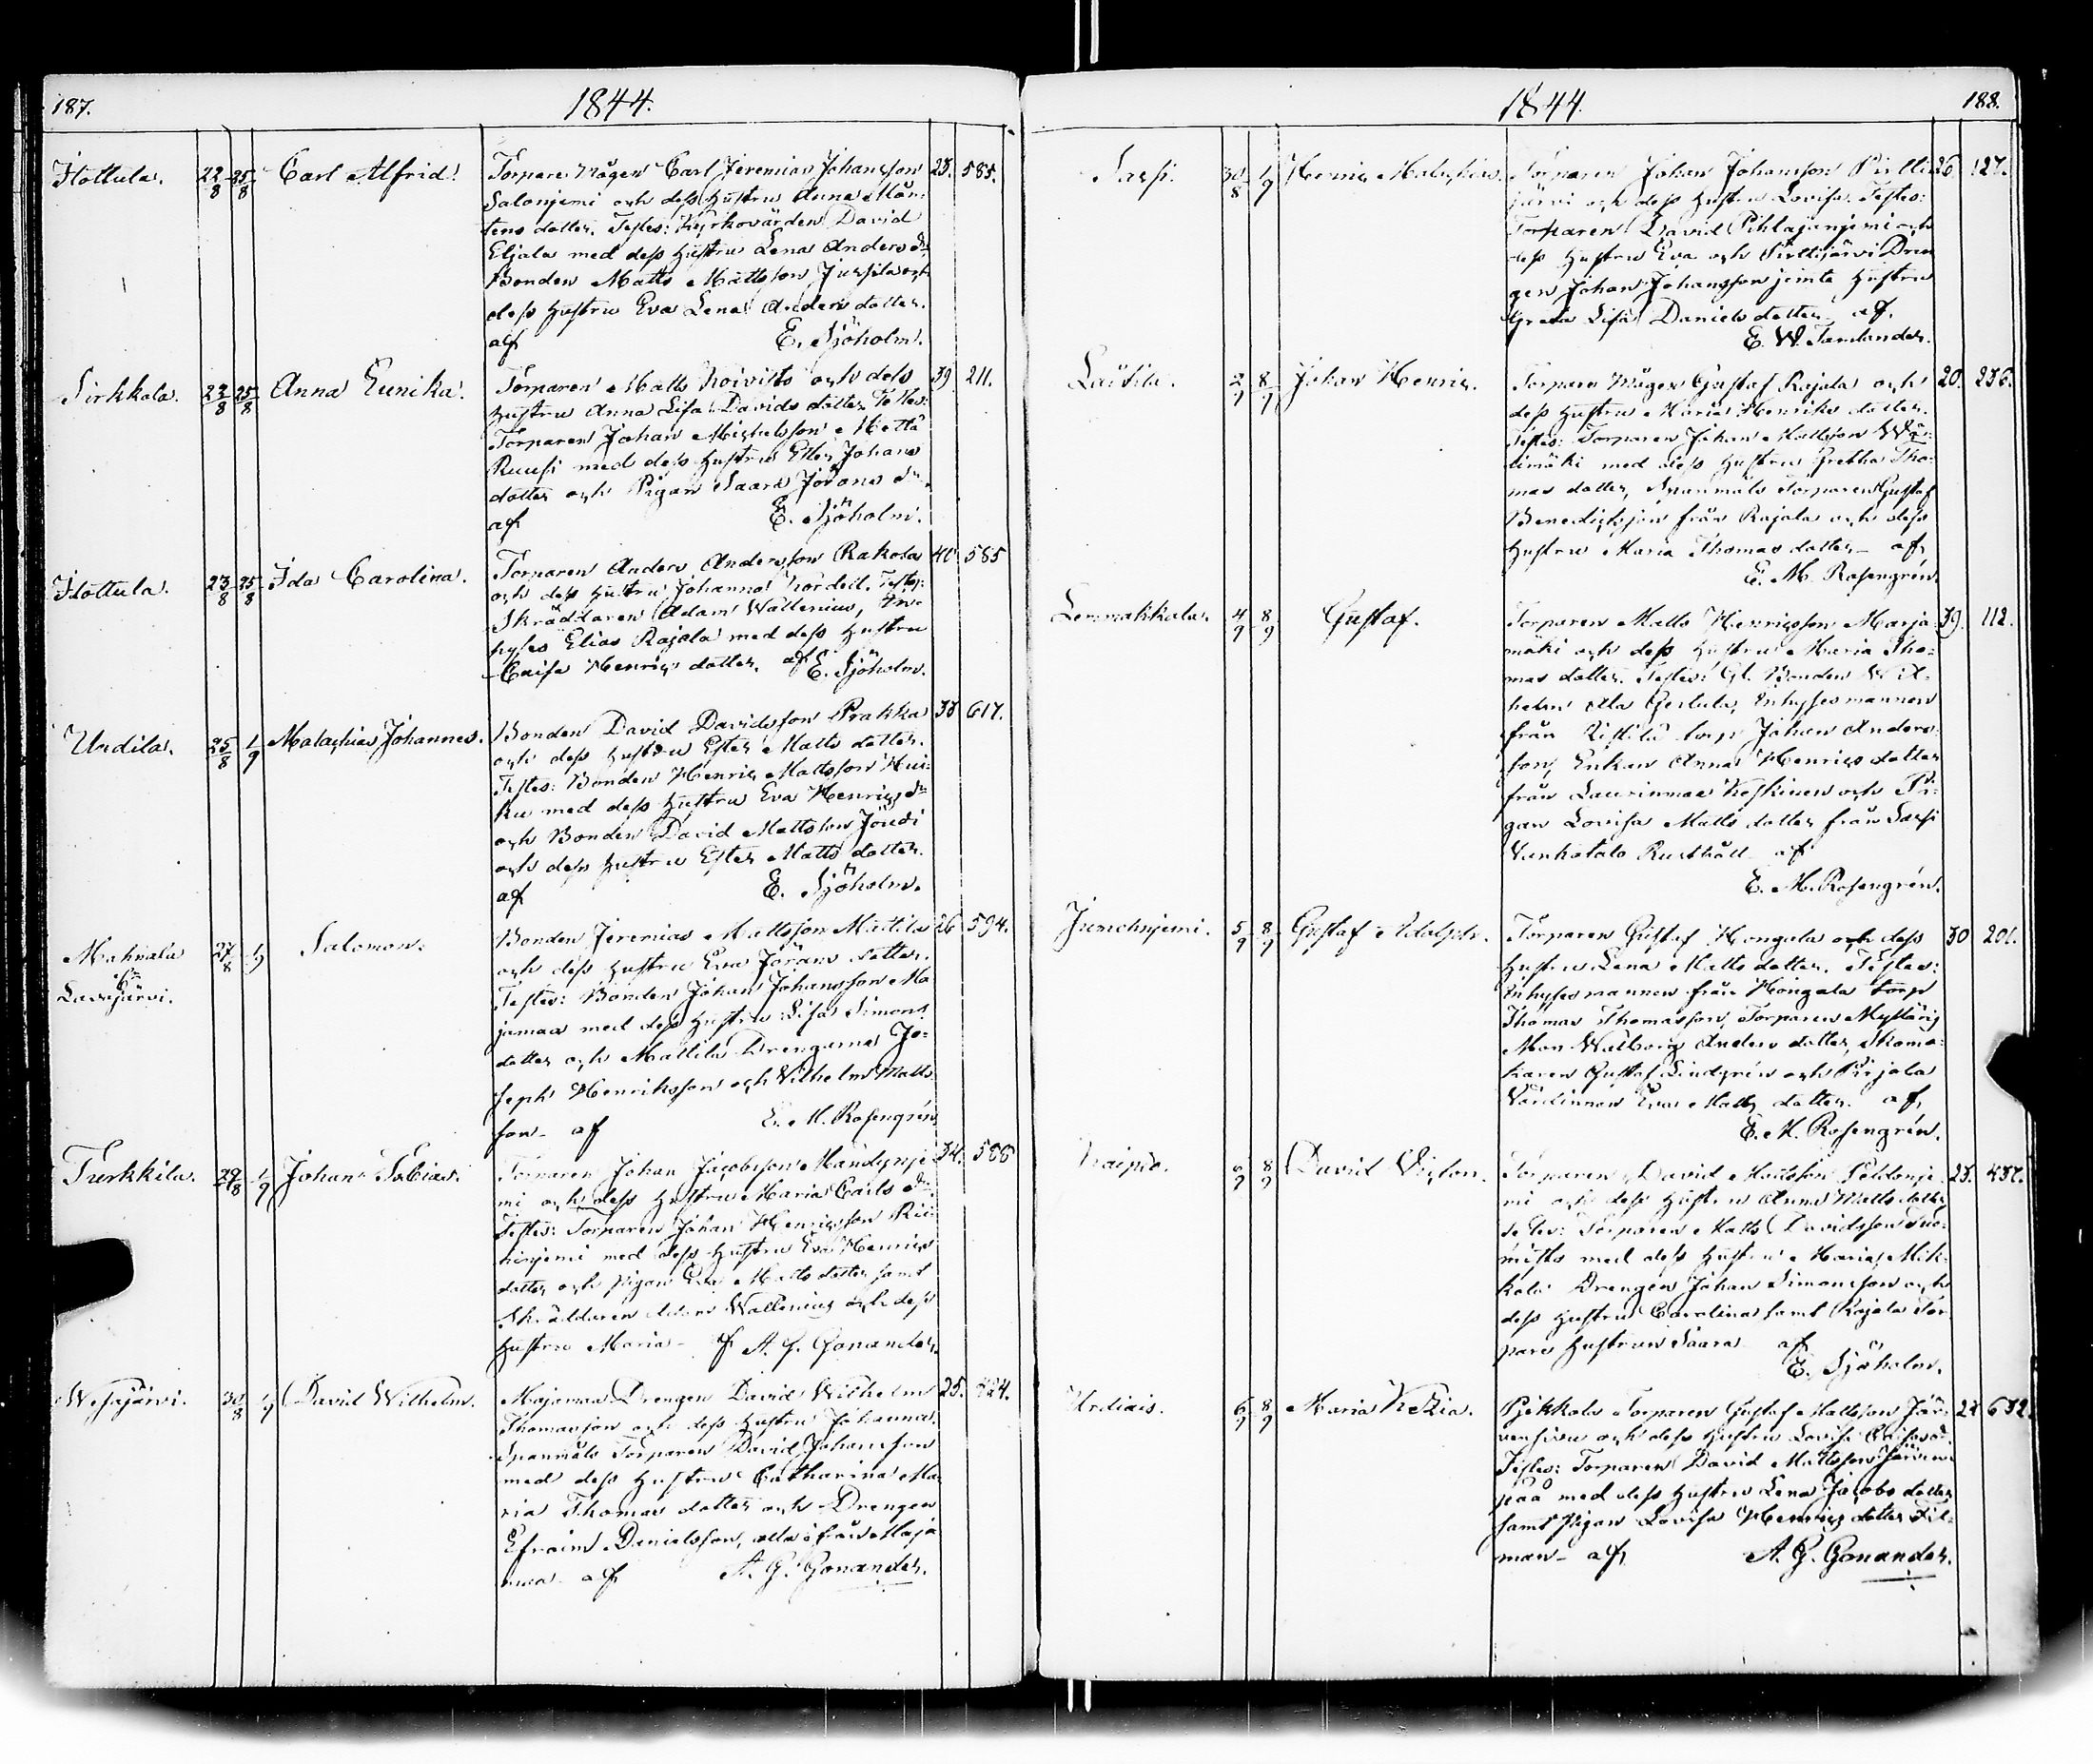 187.
1844.
Hottula. 22/8 25/8 Carl Alfrid. Torpare Mågen Carl Jeremias Johansson 23. 585.
Salonjemi och dess Hustru Anna Mår-
tens dotter. Testes: Kyrkovärden David
Eljala med dess Hustru Lena Anders dr
Bonden Matts Mattsson Jussila och
dess Hustru Eva Lena Anders dotter.
af E. Sjöholm.
Sirkkala. 22/8 25/8 Anna Eunika. Torparen Matts Koivisto och dess 39. 211.
Hustru Anna Lisa Davids dotter Testes:
Torparen Johan Michelsson Mettä
Ruusi med dess Hustru Ester Johans
dotter och Pigan Saara Jörans dr.
af E. Sjöholm.
Hottula. 23/8 25/8 Ida Carolina. Torparen Anders Andersson Rakola 40 585
och dess Hustru Johanna Nordell. Testes:
Skräddaren Adam Wallenius, In-
hyses Elias Rajala med dess Hustru
Caisa Henrics dotter. af E. Sjöholm.
Undila. 25/8 1/9 Malachias Johannes. Bonden David Davidsson Prakka 33 617.
och dess Hustru Ester Matts dotter.
Testes: Bonden Henric Mattsson Hui-
ku med dess Hustru Eva Henrics dr
och Bonden David Mattsson Jöudi
och dess Hustru Ester Matts dotter.
af E. Sjöholm.
Mahnala 27/8 1/9 Salomon. Bonden Jeremias Mattsson Mattila 26 594.
Lavajärvi. och dess Hustru Eva Jörans dotter.
Testes: Bonden Johan Johansson Ma
jamaa med dess Hustru Lisa Simons
dotter och Mattila Drengarna Jo-
seph Henriksson och Vilhelm Matts
son - af E. M. Rosengrén
Turkkila. 29/8 1/9 Johan Tobias. Torparen Johan Jacobsson Mändynje 34. 588
mi och dess Hustru Maria Carls dr.
Testes: Torparen Johan Henricsson Rii-
hinjemi med dess Hustru Eva Henrics
dotter och pigan Eva Matts dotter samt
Skräddaren Adam Wallenius och dess
Hustru Maria - af A. G. Gonander.
Wesajärvi. 30/8 1/9 David Wilhelm. Majamaa Drengen David Wilhelm 25. 424.
Thomasson och dess Hustru Johanna.
Spanmåls Torparen David Johansson
med dess Hustru Catharina Ma-
ria Thomas dotter och Drengen
Efraim Danielsson, alla ifrån Maja
maa - af A. G. Gonander.
1844.
188.
Sasfi. 30/8 1/9 Henric Malachias. Torparen Johan Johansson Pirtti 26 127.
järvi och dess Hustru Lovisa. Testes:
Torparen David Pihlajanjemi och
dess Hustru Eva och Pirttijärvi Dren
gen Johan Johansson jemte Hustru
Greta Lisa Daniels dotter - af
E. W. Tamlander.
Laitila. 2/9 8/9 Johan Henric. Torpare Mågen Gustaf Rajala och 20. 236.
dess Hustru Maria Henriks dotter.
Testes: Torparen Johan Mattsson Wär-
limäki med dess Hustru Gretha Tho-
mas dotter, Spanmåls Torparen Gustaf
Benedictsson från Rajala och dess
Hustru Maria Thomas dotter - af,
E. M. Rosengrén
Lemmakkala. 4/9 8/9 Gustaf. Torparen Matts Henricsson Marja- 39. 112.
mäki och dess Hustru Maria Tho-
mas dotter. Testes: Gl. Bonden Wil-
helm Ala Gerlula, Inhysesmannen
från Ristilä torp Johan Anders-
son, Enkan Anna Henrics dotter
från Laurinmaa Keskinen och Pi-
gan Lovisa Matts dotter från Sasfi
Vanhatalo Rusthåll - af
E. M. Rosengrén.
Jumehnjemi. 5/9 8/9 Gustaf Adolph. Torparen Gustaf Hongala och dess 30 201.
Hustru Lena Matts dotter. Testes:
Inhysesmannen från Hongala torp
Thomas Thomasson, Torparen
Walborg Anders dotter, Skoma-
karen Gustaf Lindgrén och Pirjola
Värdinnan Eva Matts dotter. af,
E. M. Rosengrén.
Kaipio. 6/9 8/9 David Victor. Torparen David Mattsson Peldonje- 23. 437.
mi och dess Hustru Anna Matts dotter
Testes: Torparen Matts Davidsson Tuo-
misto med dess Hustru Maria, Mik-
kola Drengen Johan Simonsson och
dess Hustru Carolina samt Rajala Tor
pare Hustrun Saara - af
E. Sjöholm.
Urdiais. 6/9 8/9 Maria Kezia. Pjekkala Torparen Gustaf Mattsson Jär- 24 632.
vensivu och dess Hustru Lovisa Ericsdr.
Testes: Torparen David Mattsson Järven-
pää med dess Hustru Lena Jacobs dotter
samt Pigan Lovisa Henrics dotter Fil-
man - af, A. G. Gonander.